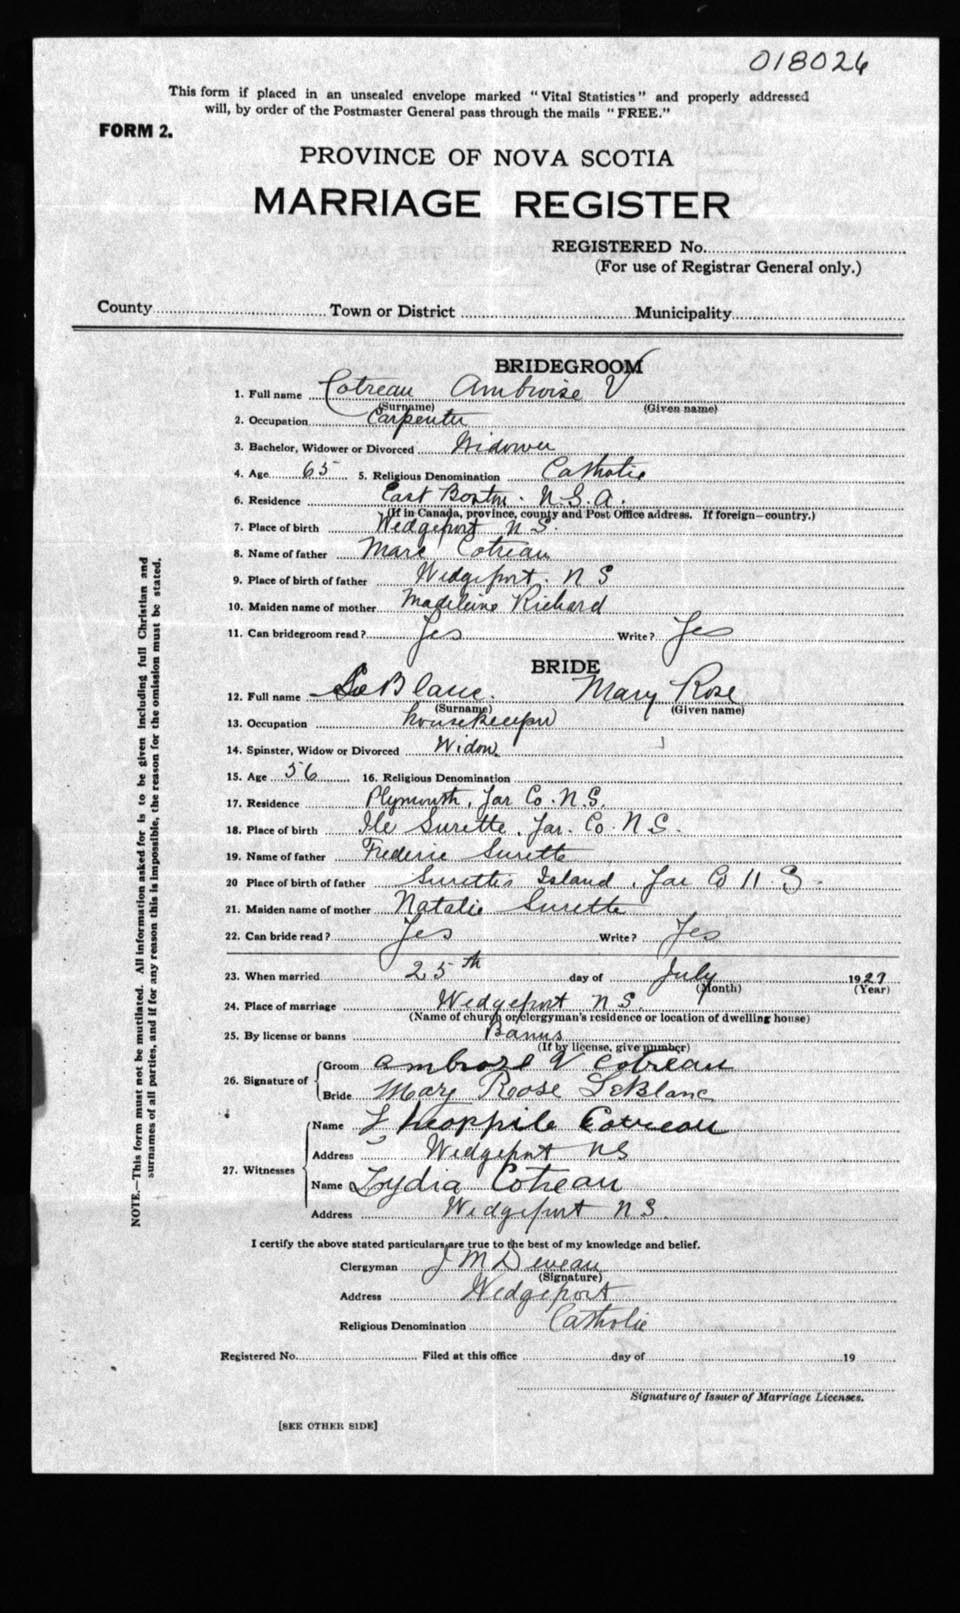 018026
This form if placed in an unsealed envelope marked "Vital Statistics" and properly addressed
will, by order of the Postmaster General pass through the mails "FREE."
FORM 2.
PROVINCE OF NOVA SCOTIA
MARRIAGE REGISTER
REGISTERED No.
(For use of Registrar General only.)
County Town or District Municipality
BRIDEGROOM
1. Full name Cotreau Ambroise V
(Surname) (Given name)
2. Occupation Carpenter
3. Bachelor, Widower or Divorced Widower
4. Age 65 5. Religious Denomination Catholic
6. Residence East Boston. U.S.A.
(If in Canada, province, county and Post Office address. If foreign—country.)
7. Place of birth Wedgeport N S.
8. Name of father Marc Cotreau
9. Place of birth of father Wedgeport. N S
10. Maiden name of mother Madeleine Richard
11. Can bridegroom read? Yes Write? Yes
BRIDE
12. Full name LeBlanc. Mary Rose
(Surname) (Given name)
13. Occupation housekeeper
14. Spinster, Widow or Divorced Widow
15. Age 56 16. Religious Denomination
17. Residence Plymouth, Yar Co. N.S.
18. Place of birth Ile Surette, Yar. Co. N S.
19. Name of father Frederic Surette
20 Place of birth of father Surette's Island, Yar Co N. S.
21. Maiden name of mother Natalie Surette
22. Can bride read? Yes Write? Yes
23. When married 25th day of July 1927
(Month) (Year)
24. Place of marriage Wedgeport N S.
(Name of church or clergyman's residence or location of dwelling house)
25. By license or banns Banns
(If by license, give number)
26. Signature of Groom Ambrose V Cotreau
Bride Mary Roose LeBlanc
27. Witnesses Name Theoppile Cotreau
Address Wedgeport NS
Name Lydia Cotreau
Address Wedgeport N S.
I certify the above stated particulars are true to the best of my knowledge and belief.
Clergyman J M Deveau
(Signature)
Address Wedgeport
Religious Denomination Catholic
Registered No. Filed at this office day of 19
Signature of Issuer of Marriage Licenses.
[SEE OTHER SIDE]
NOTE.—This form must not be mutilated. All information asked for is to be given including full Christian and
surnames of all parties, and if for any reason this is impossible, the reason for the omission must be stated.